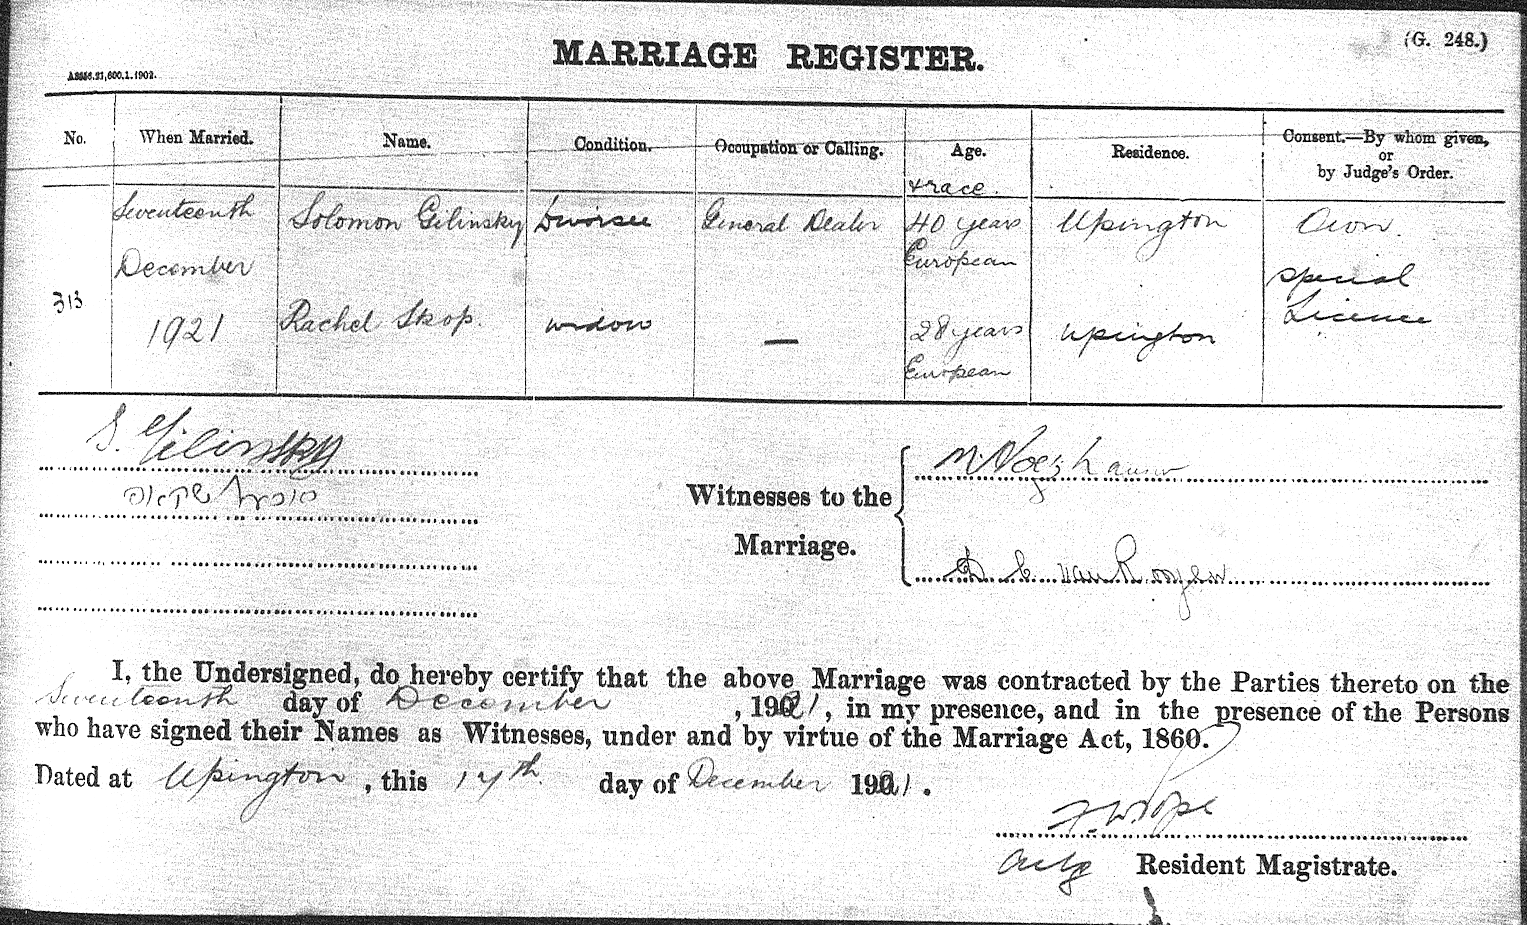 (G. 248.)
MARRIAGE REGISTER.
A2556.21,600.1.1902.
No. When Married. Name. Condition. Occupation or Calling. Age. Residence. Consent.—By whom given, or by Judge's Order.
& race.
313
Seventeenth December 1921
Solomon Gilinsky Divorsee General Dealer 40 years European Upington
Rachel Skop. widow — 28 years European Upington
Own.
Special
Licence
S. Gilinsky
Witnesses to the
Marriage.
van Rooyen
I, the Undersigned, do hereby certify that the above Marriage was contracted by the Parties thereto on the
Seventeenth day of December, 1921, in my presence, and in the presence of the Persons
who have signed their Names as Witnesses, under and by virtue of the Marriage Act, 1860.
Dated at Upington, this 17th day of December 1921.
Actg Resident Magistrate.